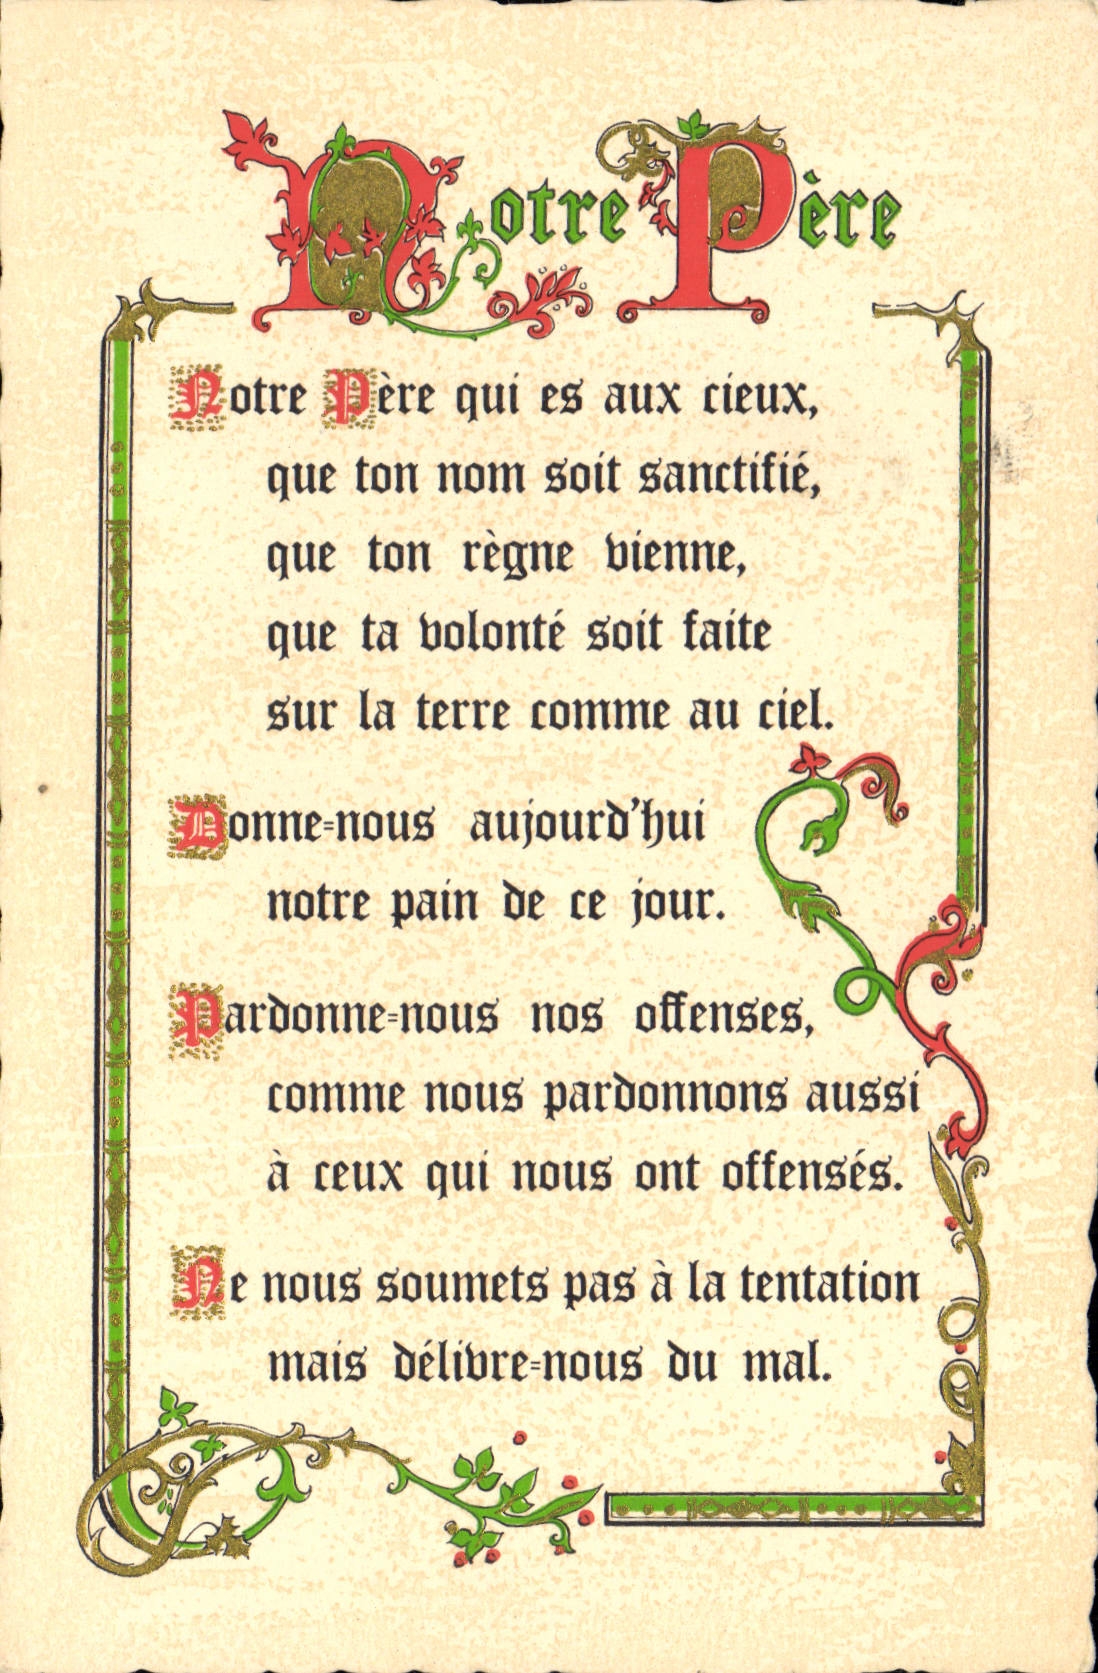 Notre Père
Notre Père qui es aux cieux,
que ton nom soit sanctifié,
que ton règne vienne,
que ta volonté soit faite
sur la terre comme au ciel.
Donne-nous aujourd'hui
notre pain de ce jour.
Pardonne-nous nos offenses,
comme nous pardonnons aussi
à ceux qui nous ont offensés.
Ne nous soumets pas à la tentation
mais délivre-nous du mal.